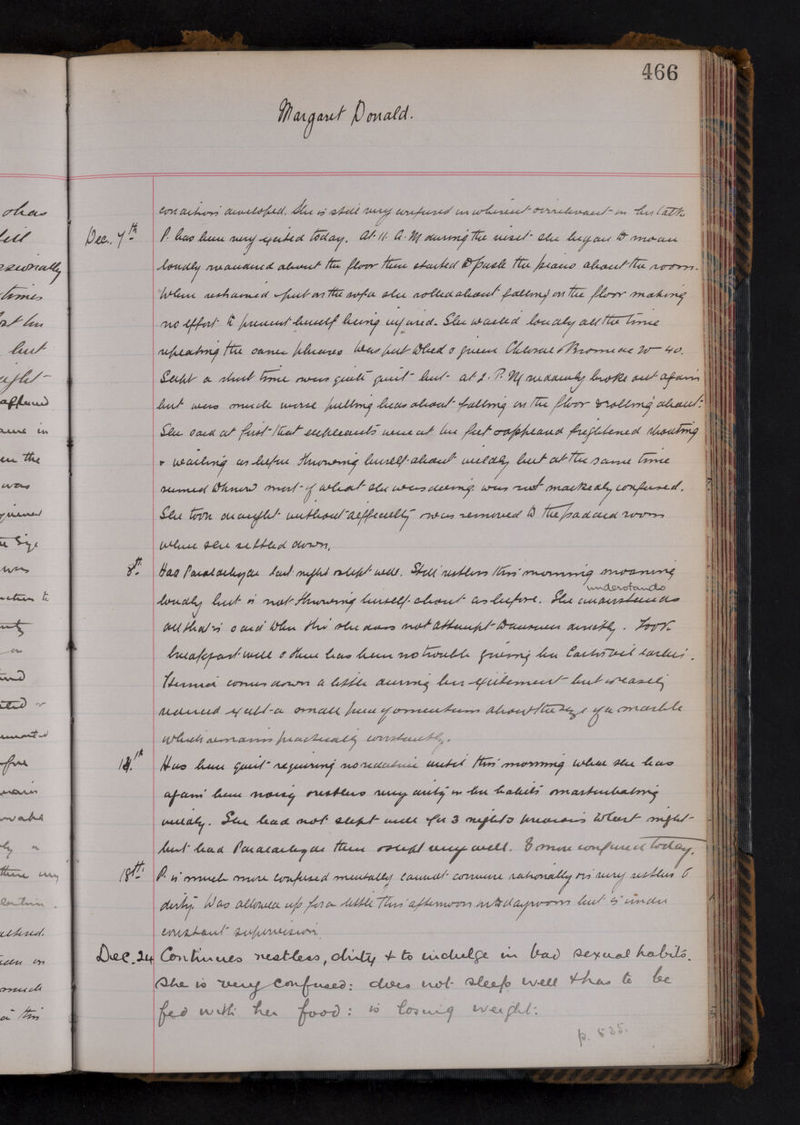 466
Margaret Donald.
condition developed. She is still very confused incoherent & irrelevant in her talk
Dec. 7th P. has been very excited today. At 11 A.M during the visit she began to moan
loudly wandered about the floor then started to push the piano about the room.
When restrained & put on the sofa she rolled about falling on the floor making
no effort to prevent herself being injured. She wailed loudly all the time
repeating the same phrases Was put to bed & given Chloral & Bromide 40.
Slept a short time & was quite quiet but at 2. P.M suddenly broke out again
but was much worse pulling beds about falling on the floor & rolling about.
She said at first that elephants were at her feet & appeared frightened shouting
& wailing as before throwing herself about wildly but at the same time
seemed to know most of what she was doing was not markedly confused.
She took draught without difficulty & was removed to the padded room
where she settled down.
8th Had Paraldehyde last night & slept well. Still restless this morning moaning
understands
loudly but is not throwing herself about as before. She
all that is said to her tho' she does not attempt to answer directly. Took
breakfast well & there has been no trouble giving her Castor oil earlier.
Hernia comes down a little during her excitement but is easily
reduced except a small piece of omentum about the size of a marble
which remains down practically constantly.
Has been quiet requiring no sedative until this morning when she has
again been noisy & restless very dirty in her habits & masturbating
wildly. She had not slept well for 3 nights previous to last night
but had Paraldehyde then & slept very well. Is more confused today.
18th P. is much more confused mentally cannot converse rationally & is very restless &
dirty. Was allowed up for a little this afternoon into dayroom but is under
constant supervision.
Dec. 24 Continues restless, dirty & to indulge in bad sexual habits.
She is very confused: does not sleep well & has to be
fed with her food: is losing weight.
p. 535.